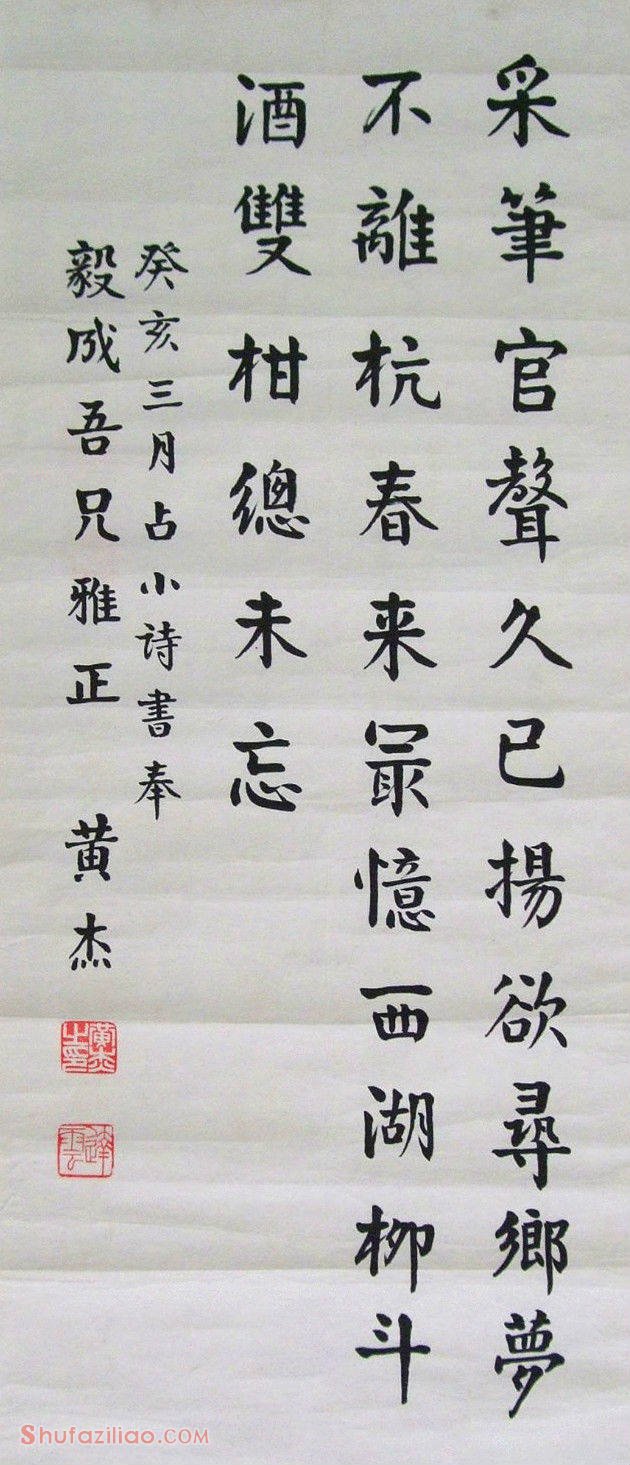 采筆官聲久已揚欲尋鄉夢
不離杭春来最憶西湖柳斗
酒雙柑總未忘
癸亥三月占小詩書奉
毅成吾兄雅正 黄杰
黃杰之印
達雲
Shufaziliao.COM